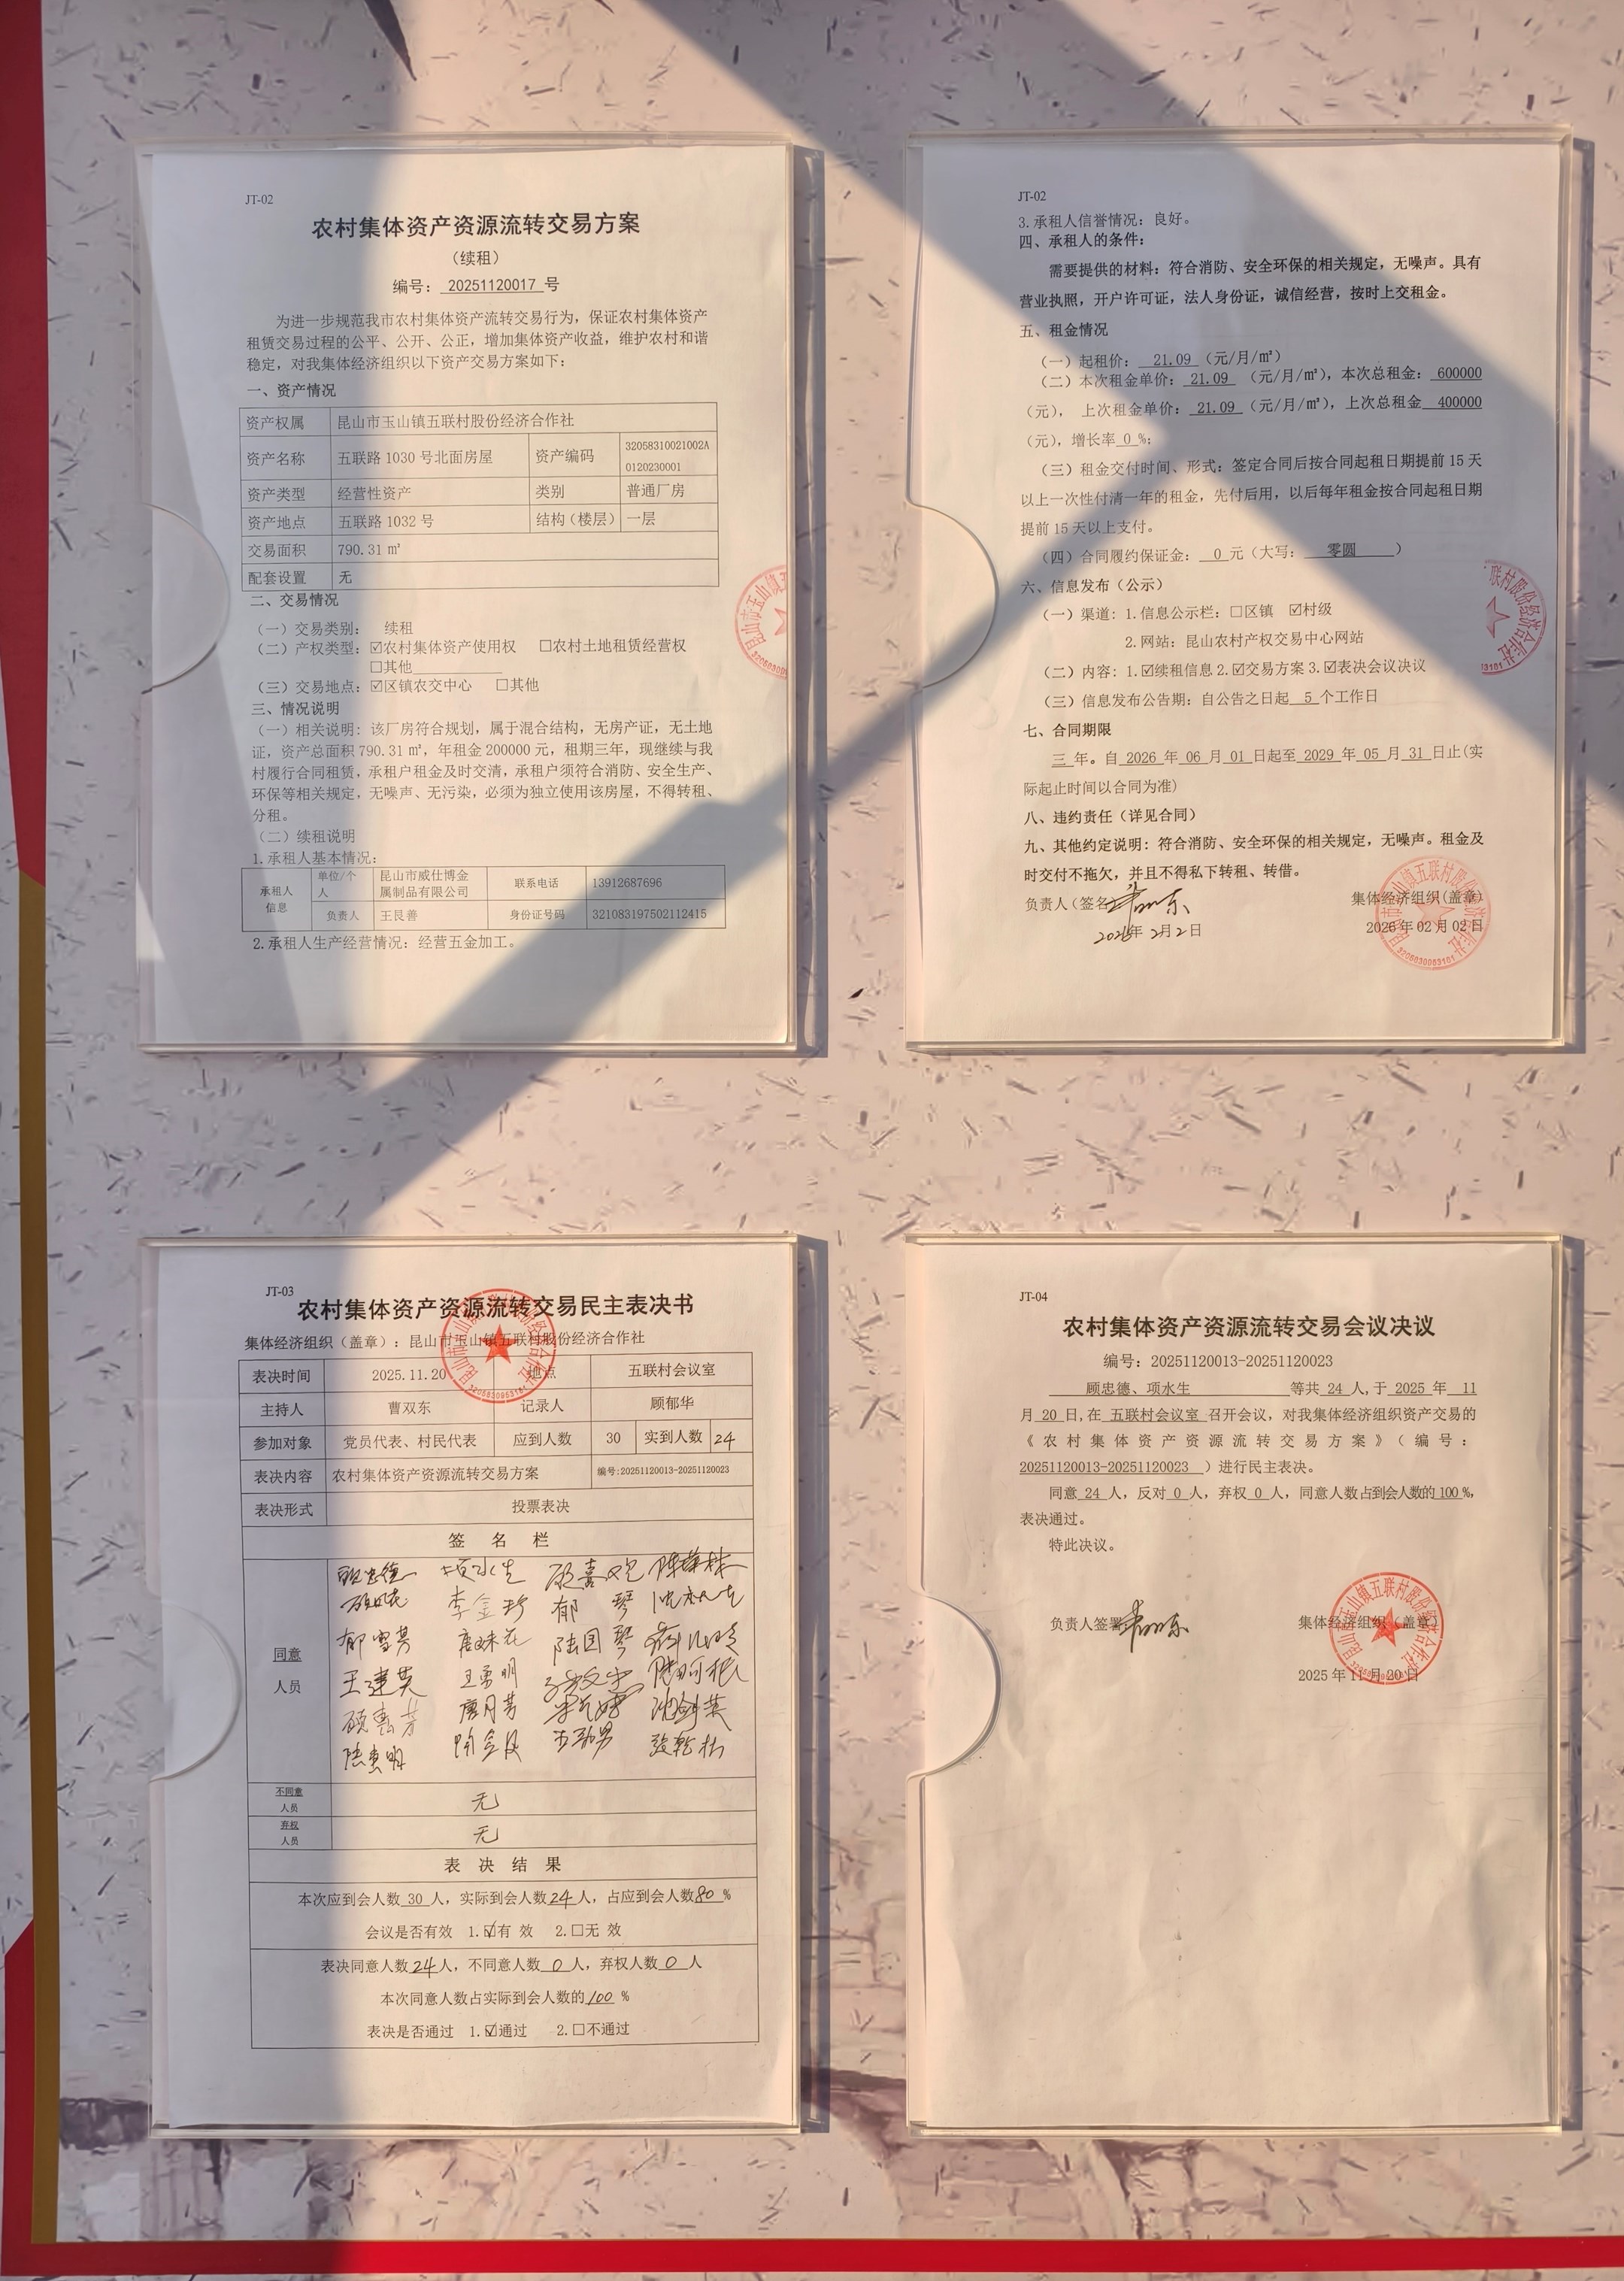 JT-02
农村集体资产资源流转交易方案
（续租）
编号： 20251120017 号
为进一步规范我市农村集体资产流转交易行为，保证农村集体资产
租赁交易过程的公平、公开、公正，增加集体资产收益，维护农村和谐
稳定，对我集体经济组织以下资产交易方案如下：
一、资产情况
资产权属 昆山市玉山镇五联村股份经济合作社
资产名称 五联路 1030 号北面房屋 资产编码 32058310021002A
0120230001
资产类型 经营性资产 类别 普通厂房
资产地点 五联路 1032 号 结构（楼层） 一层
交易面积 790.31 ㎡
配套设置 无
二、交易情况
（一）交易类别： 续租
（二）产权类型：☑农村集体资产使用权 □农村土地租赁经营权
□其他
（三）交易地点：☑区镇农交中心 □其他
三、情况说明
（一）相关说明：该厂房符合规划，属于混合结构，无房产证，无土地
证，资产总面积 790.31 ㎡，年租金 200000 元，租期三年，现继续与我
村履行合同租赁，承租户租金及时交清，承租户须符合消防、安全生产、
环保等相关规定，无噪声、无污染，必须为独立使用该房屋，不得转租、
分租。
（二）续租说明
1.承租人基本情况：
承租人信息 单位/个人 昆山市威仕博金属制品有限公司 联系电话 13912687696
负责人 王艮善 身份证号码 321083197502112415
2.承租人生产经营情况：经营五金加工。
JT-02
3.承租人信誉情况：良好。
四、承租人的条件：
需要提供的材料：符合消防、安全环保的相关规定，无噪声。具有
营业执照，开户许可证，法人身份证，诚信经营，按时上交租金。
五、租金情况
（一）起租价： 21.09 （元/月/㎡）
（二）本次租金单价： 21.09 （元/月/㎡），本次总租金： 600000
（元）， 上次租金单价： 21.09 （元/月/㎡），上次总租金 400000
（元），增长率 0 %；
（三）租金交付时间、形式：签定合同后按合同起租日期提前 15 天
以上一次性付清一年的租金，先付后用，以后每年租金按合同起租日期
提前 15 天以上支付。
（四）合同履约保证金： 0 元（大写： 零圆 ）
六、信息发布（公示）
（一）渠道：1.信息公示栏：□区镇 ☑村级
2.网站：昆山农村产权交易中心网站
（二）内容：1.☑续租信息 2.☑交易方案 3.☑表决会议决议
（三）信息发布公告期：自公告之日起 5 个工作日
七、合同期限
三 年。自 2026 年 06 月 01 日起至 2029 年 05 月 31 日止(实
际起止时间以合同为准)
八、违约责任（详见合同）
九、其他约定说明：符合消防、安全环保的相关规定，无噪声。租金及
时交付不拖欠，并且不得私下转租、转借。
负责人（签名 集体经济组织(盖章)
2026年 2月2日 2026 年 02 月 02 日
JT-03
农村集体资产资源流转交易民主表决书
集体经济组织（盖章）：昆山市玉山镇五联村股份经济合作社
表决时间 2025.11.20 地点 五联村会议室
主持人 曹双东 记录人 顾郁华
参加对象 党员代表、村民代表 应到人数 30 实到人数 24
表决内容 农村集体资产资源流转交易方案 编号:20251120013-20251120023
表决形式 投票表决
签 名 栏
同意人员
顾忠德 项水生
李金珍 郁 琴
郁雪芳 陆国琴
王建英 王勇明
顾惠芳 唐月芳
陆惠明
不同意人员 无
弃权人员 无
表 决 结 果
本次应到会人数 30 人，实际到会人数 24 人，占应到会人数 80 %
会议是否有效 1.☑有 效 2.□无 效
表决同意人数 24 人，不同意人数 0 人，弃权人数 0 人
本次同意人数占实际到会人数的 100 %
表决是否通过 1.☑通过 2.□不通过
JT-04
农村集体资产资源流转交易会议决议
编号：20251120013-20251120023
顾忠德、项水生 等共 24 人,于 2025 年 11
月 20 日,在 五联村会议室 召开会议，对我集体经济组织资产交易的
《农村集体资产资源流转交易方案》（编号：
20251120013-20251120023 ）进行民主表决。
同意 24 人，反对 0 人，弃权 0 人，同意人数占到会人数的 100 %，
表决通过。
特此决议。
负责人签署 集体经济组织（盖章）
2025 年 11 月 20 日